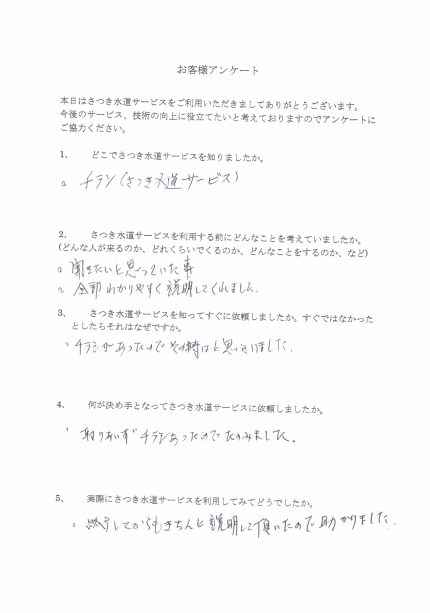 お客様アンケート
本日はさつき水道サービスをご利用いただきましてありがとうございます。
今後のサービス、技術の向上に役立てたいと考えておりますのでアンケートに
ご協力ください。
1、 どこでさつき水道サービスを知りましたか。
チラシ(さつき水道サービス)
2、 さつき水道サービスを利用する前にどんなことを考えていましたか。
(どんな人が来るのか、どれくらいでくるのか、どんなことをするのか、など)
聞きたいと思っていた事
全部わかりやすく説明してくれました。
3、 さつき水道サービスを知ってすぐに依頼しましたか。すぐではなかった
としたらそれはなぜですか。
チラシがあったのでその時はと思いました.
4、 何が決め手となってさつき水道サービスに依頼しましたか。
取りあいずチラシあったのでたのみました.
5、 実際にさつき水道サービスを利用してみてどうでしたか。
終了してからもきちんと説明して頂いたので助かりました.